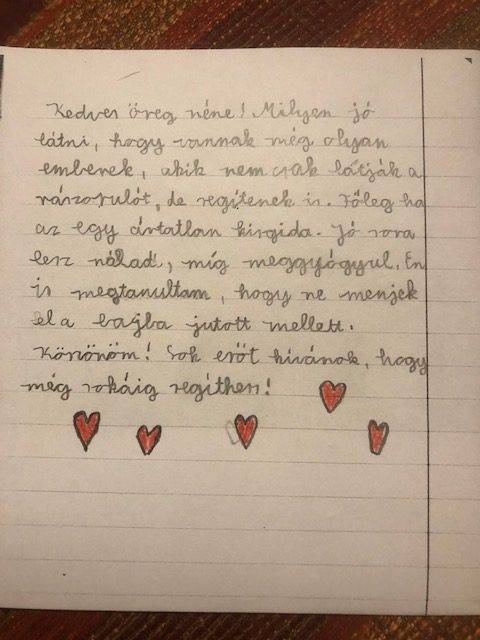 Kedves öreg néne! Milyen jó
látni, hogy vannak még olyan
emberek, akik nem csak látják a
rászorulót, de segítenek is. Főleg ha
az egy ártatlan kisgida. Jó sora
lesz nálad, míg meggyógyul. Én
is megtanultam, hogy ne menjek
el a bajba jutott mellett.
Köszönöm! Sok erőt kívánok, hogy
még sokáig segíthess!